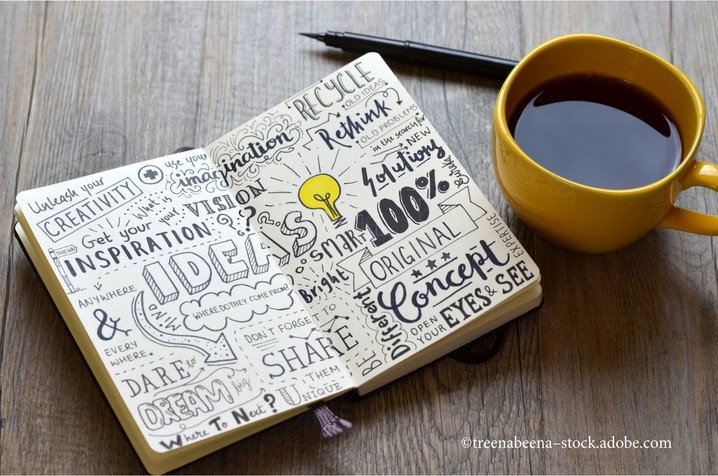 Unleash your
CREATIVITY
use your
imagination
What is
your VISION
?
Get your
INSPIRATION
ANYWHERE
&
EVERY
WHERE.
IDEAS
MIND
WHERE DO THEY COME FROM?
DARE to
DREAM big
Where To Next?
DON'T FORGET
TO
SHARE
THEM
UNIQUE
RECYCLE
OLD IDEAS
Rethink
OLD PROBLEMS
in the search for
NEW
Solutions
SMART
100%
bright
ORIGINAL
Concept
EXPERTISE
BE
Different
OPEN
YOUR EYES & SEE
©treenabeena-stock.adobe.com